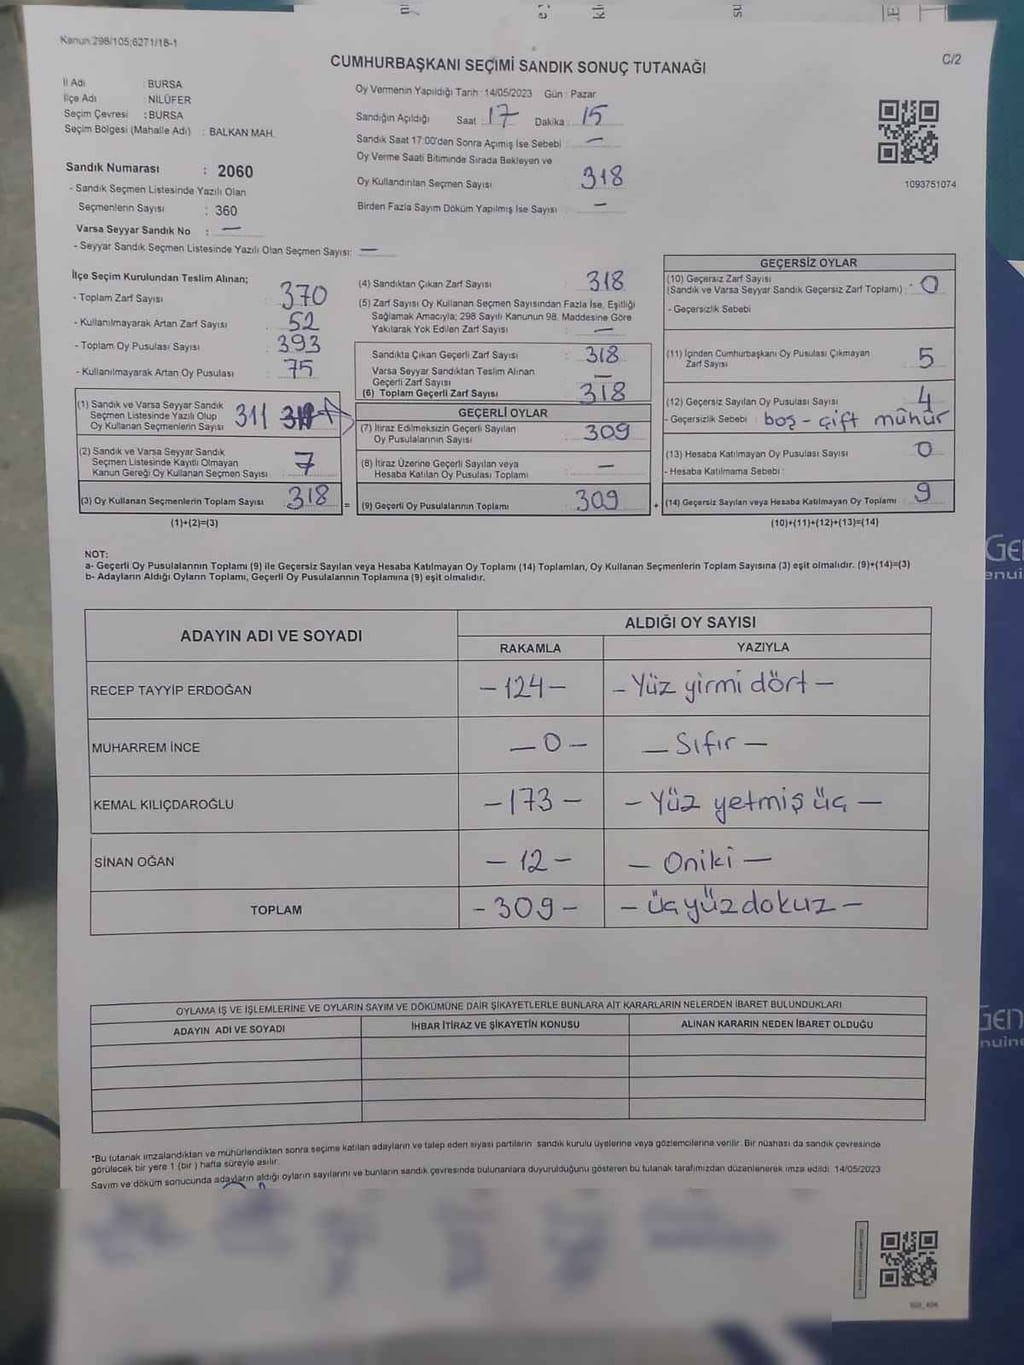 Kanun:298/105;6271/18-1
C/2
CUMHURBAŞKANI SEÇİMİ SANDIK SONUÇ TUTANAĞI
İl Adı : BURSA
İlçe Adı : NİLÜFER
Seçim Çevresi : BURSA
Seçim Bölgesi (Mahalle Adı) : BALKAN MAH.
Sandık Numarası : 2060
- Sandık Seçmen Listesinde Yazılı Olan
Seçmenlerin Sayısı : 360
Varsa Seyyar Sandık No : —
- Seyyar Sandık Seçmen Listesinde Yazılı Olan Seçmen Sayısı: —
Oy Vermenin Yapıldığı Tarih :14/05/2023 Gün : Pazar
Sandığın Açıldığı Saat : 17 Dakika : 15
Sandık Saat 17:00'den Sonra Açılmış İse Sebebi : —
Oy Verme Saati Bitiminde Sırada Bekleyen ve
Oy Kullandırılan Seçmen Sayısı : 318
Birden Fazla Sayım Döküm Yapılmış İse Sayısı : —
1093751074
İlçe Seçim Kurulundan Teslim Alınan;
- Toplam Zarf Sayısı : 370
- Kullanılmayarak Artan Zarf Sayısı : 52
- Toplam Oy Pusulası Sayısı : 393
- Kullanılmayarak Artan Oy Pusulası : 75
(1) Sandık ve Varsa Seyyar Sandık
Seçmen Listesinde Yazılı Olup
Oy Kullanan Seçmenlerin Sayısı : 311
(2) Sandık ve Varsa Seyyar Sandık
Seçmen Listesinde Kayıtlı Olmayan
Kanun Gereği Oy Kullanan Seçmen Sayısı : 7
(3) Oy Kullanan Seçmenlerin Toplam Sayısı : 318 =
(1)+(2)=(3)
(4) Sandıktan Çıkan Zarf Sayısı : 318
(5) Zarf Sayısı Oy Kullanan Seçmen Sayısından Fazla İse, Eşitliği
Sağlamak Amacıyla; 298 Sayılı Kanunun 98. Maddesine Göre
Yakılarak Yok Edilen Zarf Sayısı : —
Sandıkta Çıkan Geçerli Zarf Sayısı : 318
Varsa Seyyar Sandıktan Teslim Alınan
Geçerli Zarf Sayısı : —
(6) Toplam Geçerli Zarf Sayısı : 318
GEÇERLİ OYLAR
(7) İtiraz Edilmeksizin Geçerli Sayılan
Oy Pusulalarının Sayısı : 309
(8) İtiraz Üzerine Geçerli Sayılan veya
Hesaba Katılan Oy Pusulası Toplamı : —
(9) Geçerli Oy Pusulalarının Toplamı : 309 +
GEÇERSİZ OYLAR
(10) Geçersiz Zarf Sayısı
(Sandık ve Varsa Seyyar Sandık Geçersiz Zarf Toplamı) : 0
- Geçersizlik Sebebi
(11) İçinden Cumhurbaşkanı Oy Pusulası Çıkmayan
Zarf Sayısı : 5
(12) Geçersiz Sayılan Oy Pusulası Sayısı : 4
- Geçersizlik Sebebi : boş - çift mühür
(13) Hesaba Katılmayan Oy Pusulası Sayısı : 0
- Hesaba Katılmama Sebebi :
(14) Geçersiz Sayılan veya Hesaba Katılmayan Oy Toplamı : 9
(10)+(11)+(12)+(13)=(14)
NOT:
a- Geçerli Oy Pusulalarının Toplamı (9) ile Geçersiz Sayılan veya Hesaba Katılmayan Oy Toplamı (14) Toplamları, Oy Kullanan Seçmenlerin Toplam Sayısına (3) eşit olmalıdır. (9)+(14)=(3)
b- Adayların Aldığı Oyların Toplamı, Geçerli Oy Pusulalarının Toplamına (9) eşit olmalıdır.
ADAYIN ADI VE SOYADI
ALDIĞI OY SAYISI
RAKAMLA YAZIYLA
RECEP TAYYİP ERDOĞAN - 124 - - Yüz yirmi dört -
MUHARREM İNCE - 0 - - Sıfır -
KEMAL KILIÇDAROĞLU - 173 - - Yüz yetmiş üç -
SİNAN OĞAN - 12 - - Oniki -
TOPLAM - 309 - - üçyüzdokuz -
OYLAMA İŞ VE İŞLEMLERİNE VE OYLARIN SAYIM VE DÖKÜMÜNE DAİR ŞİKAYETLERLE BUNLARA AİT KARARLARIN NELERDEN İBARET BULUNDUKLARI
ADAYIN ADI VE SOYADI İHBAR İTİRAZ VE ŞİKAYETİN KONUSU ALINAN KARARIN NEDEN İBARET OLDUĞU
*Bu tutanak imzalandıktan ve mühürlendikten sonra seçime katılan adayların ve talep eden siyasi partilerin sandık kurulu üyelerine veya gözlemcilerine verilir. Bir nüshası da sandık çevresinde
görülecek bir yere 1 (bir) hafta süreyle asılır.
Sayım ve döküm sonucunda adayların aldığı oyların sayılarını ve bunların sandık çevresinde bulunanlara duyurulduğunu gösteren bu tutanak tarafımızdan düzenlenerek imza edildi. 14/05/2023